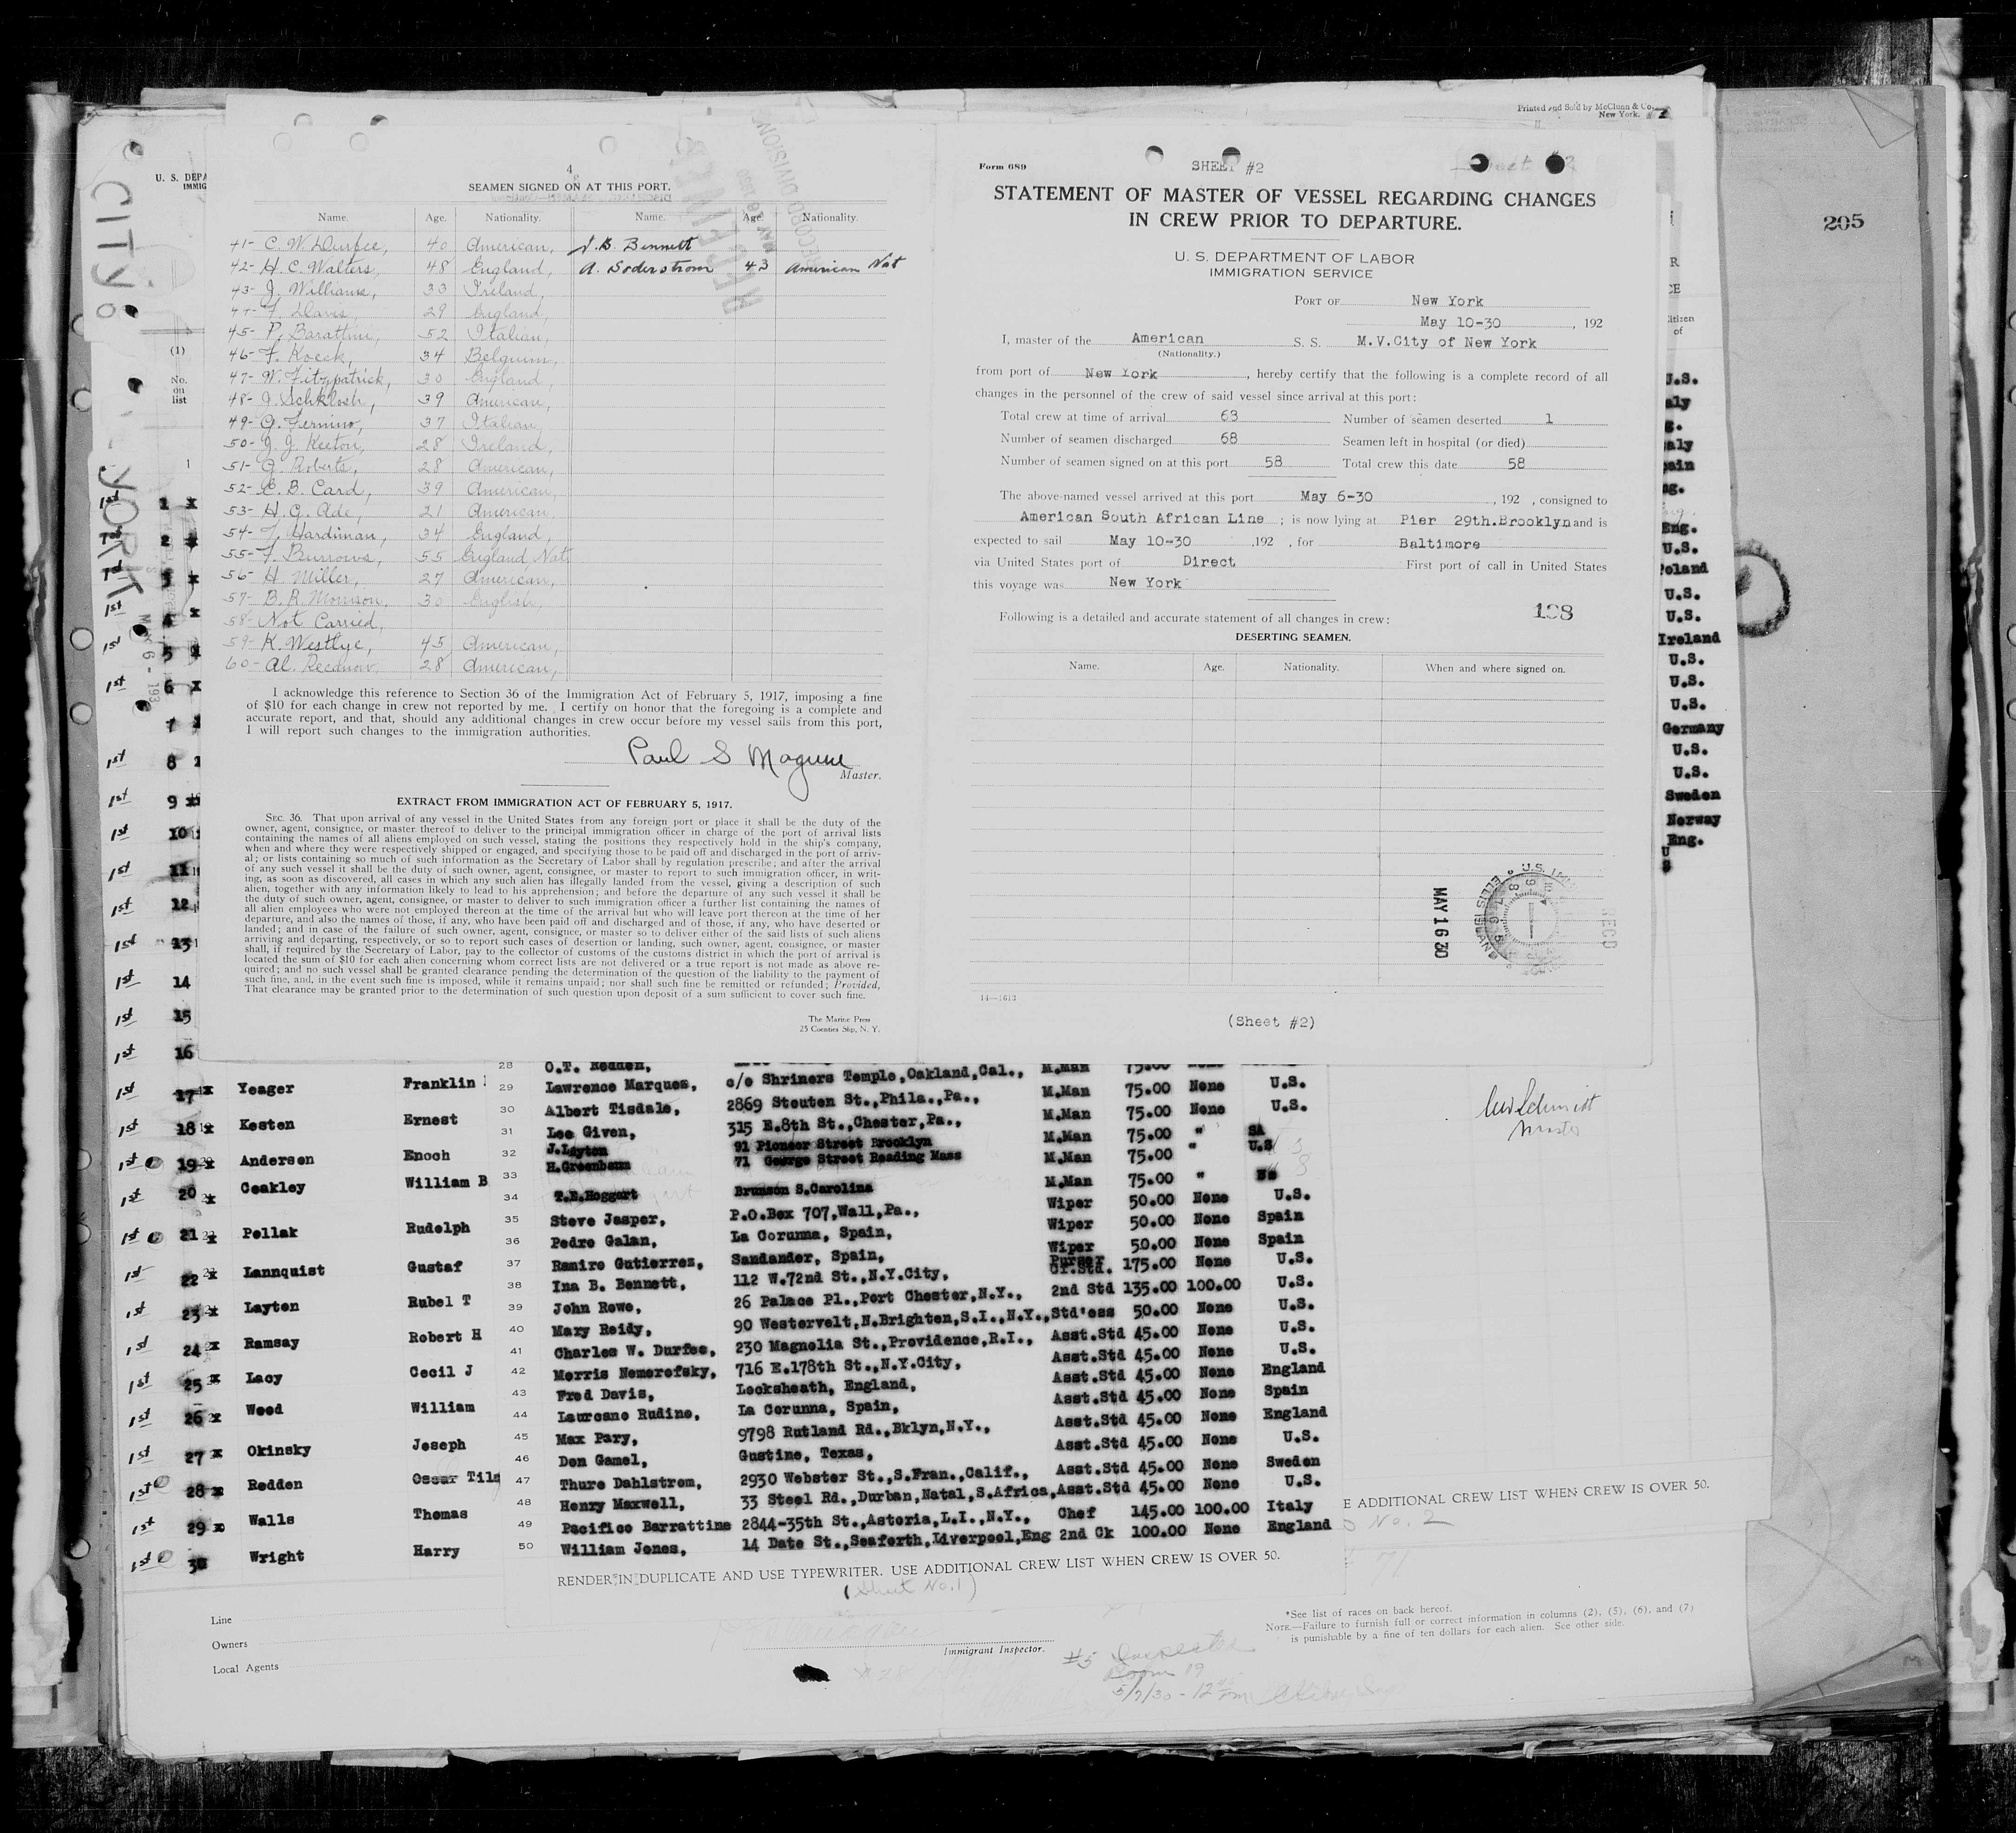 Printed and Sold by McClunn & Co.
New York.
205
CITY of
YORK
U. S. DEPA
IMMIG
(1)
No.
on
list
4
SEAMEN SIGNED ON AT THIS PORT.
Name. Age. Nationality. Name. Age. Nationality.
41- C. W. Durfee, 40 American, J. B. Bennett
42- H. C. Walters, 48 England, A. Soderstrom 43 American Nat
43- J. Williams, 33 Ireland,
44- F. Davis, 29 England,
45- P. Barattini, 52 Italian,
46- F. Koeck, 34 Belguim,
47- W. Fitzpatrick, 30 England,
48- J. Schklosh, 39 American,
49- G. Fernino, 37 Italian,
50- J. J. Keeton, 28 Ireland,
51- G. Roberts, 28 American,
52- E. B. Card, 39 American,
53- H. G. Ade, 21 American.
54- F. Hardiman, 34 England,
55- F. Burrows, 55 England Nat,
56- H. Miller, 27 American,
57- B. R. Morrison, 30 English,
58- Not Carried,
59- K. Westlye, 45 American,
60- Al. Recanow, 28 American,
I acknowledge this reference to Section 36 of the Immigration Act of February 5, 1917, imposing a fine
of $10 for each change in crew not reported by me. I certify on honor that the foregoing is a complete and
accurate report, and that, should any additional changes in crew occur before my vessel sails from this port,
I will report such changes to the immigration authorities.
Paul S Magune
Master.
EXTRACT FROM IMMIGRATION ACT OF FEBRUARY 5, 1917.
SEC. 36. That upon arrival of any vessel in the United States from any foreign port or place it shall be the duty of the
owner, agent, consignee, or master thereof to deliver to the principal immigration officer in charge of the port of arrival lists
containing the names of all aliens employed on such vessel, stating the positions they respectively hold in the ship's company,
when and where they were respectively shipped or engaged, and specifying those to be paid off and discharged in the port of arriv-
al; or lists containing so much of such information as the Secretary of Labor shall by regulation prescribe; and after the arrival
of any such vessel it shall be the duty of such owner, agent, consignee, or master to report to such immigration officer, in writ-
ing, as soon as discovered, all cases in which any such alien has illegally landed from the vessel, giving a description of such
alien, together with any information likely to lead to his apprehension; and before the departure of any such vessel it shall be
the duty of such owner, agent, consignee, or master to deliver to such immigration officer a further list containing the names of
all alien employees who were not employed thereon at the time of the arrival but who will leave port thereon at the time of her
departure, and also the names of those, if any, who have been paid off and discharged and of those, if any, who have deserted or
landed; and in case of the failure of such owner, agent, consignee, or master so to deliver either of the said lists of such aliens
arriving and departing, respectively, or so to report such cases of desertion or landing, such owner, agent, consignee, or master
shall, if required by the Secretary of Labor, pay to the collector of customs of the customs district in which the port of arrival is
located the sum of $10 for each alien concerning whom correct lists are not delivered or a true report is not made as above re-
quired; and no such vessel shall be granted clearance pending the determination of the question of the liability to the payment of
such fine, and, in the event such fine is imposed, while it remains unpaid; nor shall such fine be remitted or refunded; Provided,
That clearance may be granted prior to the determination of such question upon deposit of a sum sufficient to cover such fine.
The Marine Press
25 Coenties Slip, N. Y.
Form 689 SHEET #2
STATEMENT OF MASTER OF VESSEL REGARDING CHANGES
IN CREW PRIOR TO DEPARTURE.
U. S. DEPARTMENT OF LABOR
IMMIGRATION SERVICE
PORT OF New York
May 10-30, 192
I, master of the American S. S. M.V.City of New York
(Nationality.)
from port of New York, hereby certify that the following is a complete record of all
changes in the personnel of the crew of said vessel since arrival at this port:
Total crew at time of arrival 63 Number of seamen deserted 1
Number of seamen discharged 68 Seamen left in hospital (or died)
Number of seamen signed on at this port 58 Total crew this date 58
The above-named vessel arrived at this port May 6-30, 192 , consigned to
American South African Line ; is now lying at Pier 29th.Brooklyn and is
expected to sail May 10-30 ,192 , for Baltimore
via United States port of Direct First port of call in United States
this voyage was New York
Following is a detailed and accurate statement of all changes in crew: 138
DESERTING SEAMEN.
Name. Age. Nationality. When and where signed on.
MAY 16 30
U.S. IMM
ELLIS ISLAND
14—1613
(Sheet #2)
itizen
of
U.S.
Eng.
U.S.
Poland
U.S.
U.S.
Ireland
U.S.
U.S.
U.S.
Germany
U.S.
U.S.
Sweden
Norway
Eng.
U
S
1st 1 x
1st 2 x
1st 3 x
1st 4 x
1st 5 x
1st 6 x
7
1st 8
1st 9
1st 10
1st 11
1st 12
1st 13
1st 14
1st 15
1st 16
1st 17 x Yeager Franklin
1st 18 x Kesten Ernest
1st 19 x Andersen Enoch
1st 20 x Coakley William B
1st 21 x Pollak Rudolph
1st 22 x Lannquist Gustaf
1st 23 x Layton Rubel T
1st 24 x Ramsay Robert H
1st 25 x Lacy Cecil J
1st 26 x Wood William
1st 27 x Okinsky Joseph
1st 28 x Redden Oscar Tilg
1st 29 x Walls Thomas
1st 30 Wright Harry
28 O.T. Redden, M.Man 75.00 None
29 Lawrence Marques, c/o Shriners Temple,Oakland,Cal., M.Man 75.00 None U.S.
30 Albert Tisdale, 2869 Stouten St.,Phila.,Pa., M.Man 75.00 None U.S.
31 Lee Given, 315 E.8th St.,Chester,Pa., M.Man 75.00 " SA
32 J.Layton 91 Pioneer Street Brooklyn M.Man 75.00 " U.S
33 H.Greenbaum 71 George Street Reading Mass M.Man 75.00 "
34 T.E.Hoggart Brunson S.Carolina Wiper 50.00 None U.S.
35 Steve Jasper, P.O.Box 707,Wall,Pa., Wiper 50.00 None Spain
36 Pedro Galan, La Corunna, Spain, Wiper 50.00 None Spain
37 Ramiro Gutierrez, Sandander, Spain, Purser Cr.Std. 175.00 None U.S.
38 Ina B. Bennett, 112 W.72nd St.,N.Y.City, 2nd Std 135.00 100.00 U.S.
39 John Rowe, 26 Palace Pl.,Port Chester,N.Y., Std'ess 50.00 None U.S.
40 Mary Reidy, 90 Westervelt,N.Brighton,S.I.,N.Y., Asst.Std 45.00 None U.S.
41 Charles W. Durfee, 230 Magnolia St.,Providence,R.I., Asst.Std 45.00 None U.S.
42 Morris Nemerofsky, 716 E.178th St.,N.Y.City, Asst.Std 45.00 None England
43 Fred Davis, Locksheath, England, Asst.Std 45.00 None Spain
44 Laurcano Rudino, La Corunna, Spain, Asst.Std 45.00 None England
45 Max Pary, 9798 Rutland Rd.,Bklyn,N.Y., Asst.Std 45.00 None U.S.
46 Don Gamel, Gustine, Texas, Asst.Std 45.00 None Sweden
47 Thure Dahlstrom, 2930 Webster St.,S.Fran.,Calif., Asst.Std 45.00 None U.S.
48 Henry Maxwell, 33 Steel Rd.,Durban,Natal,S.Africa, Chef 145.00 100.00 Italy
49 Pacifico Barrattine 2844-35th St.,Astoria,L.I.,N.Y., 2nd Ck 100.00 None England
50 William Jones, 14 Date St.,Seaforth,Liverpool,Eng
RENDER IN DUPLICATE AND USE TYPEWRITER. USE ADDITIONAL CREW LIST WHEN CREW IS OVER 50.
(Sheet No.1)
Master
E ADDITIONAL CREW LIST WHEN CREW IS OVER 50.
No. 2
Line
Owners
Local Agents
Immigrant Inspector.
*See list of races on back hereof.
NOTE.—Failure to furnish full or correct information in columns (2), (5), (6), and (7)
is punishable by a fine of ten dollars for each alien. See other side.
#5
Room 19
5/7/30 - 12